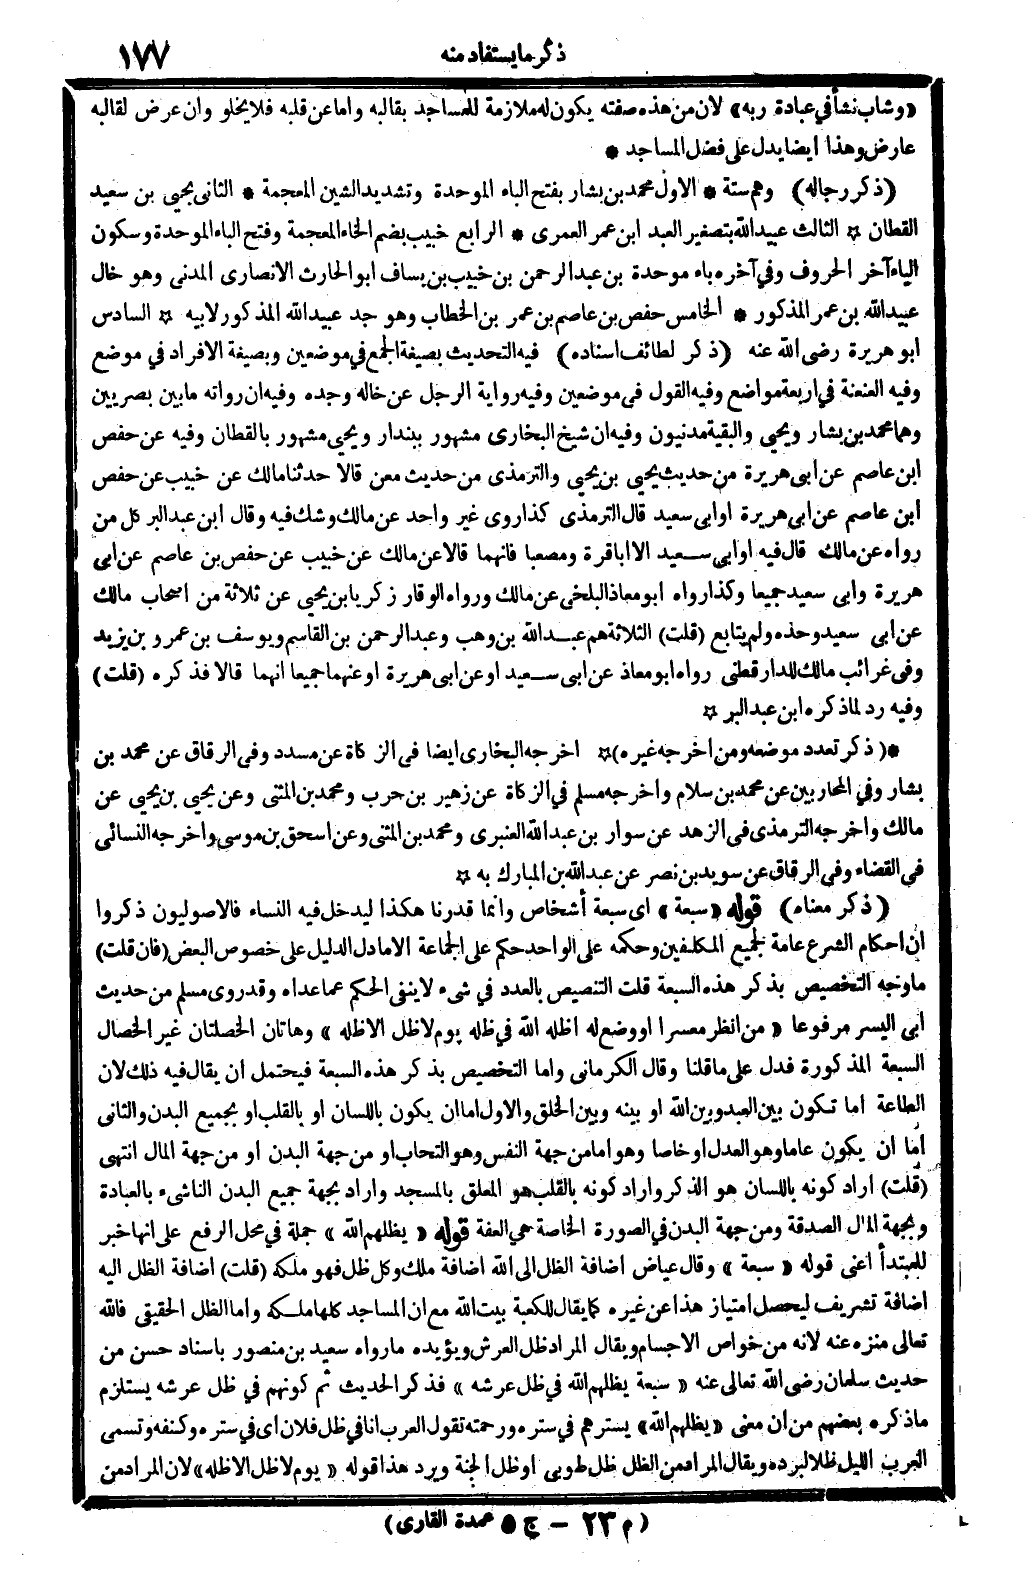 ذكر ما يستفاد منه ١٧٧
«وشاب نشأ في عبادة ربه» لان من هذه صفته يكون له ملازمة للمساجد بقالبه واما عن قلبه فلا يخلو وان عرض لقالبه
عارض وهذا ايضا يدل على فضل المساجد *
(ذكر رجاله) وهم ستة * الاول محمد بن بشار بفتح الباء الموحدة وتشديد الشين المعجمة * الثانى يحيى بن سعيد
القطان * الثالث عبيد الله بتصغير العبد ابن عمر العمرى * الرابع خبيب بضم الخاء المعجمة وفتح الباء الموحدة وسكون
الياء آخر الحروف وفي آخره باء موحدة بن عبد الرحمن بن خبيب بن يساف ابو الحارث الانصارى المدنى وهو خال
عبيد الله بن عمر المذكور * الخامس حفص بن عاصم بن عمر بن الخطاب وهو جد عبيد الله المذكور لابيه * السادس
ابو هريرة رضى الله عنه (ذكر لطائف اسناده) فيه التحديث بصيغة الجمع في موضعين وبصيغة الافراد في موضع
وفيه العنعنة في اربعة مواضع وفيه القول فى موضعين وفيه رواية الرجل عن خاله وجده وفيه ان رواته ما بين بصريين
وهما محمد بن بشار ويحيى والبقية مدنيون وفيه ان شيخ البخارى مشهور ببندار ويحيى مشهور بالقطان وفيه عن حفص
ابن عاصم عن ابى هريرة من حديث يحيى بن يحيى والترمذى من حديث معن قالا حدثنا مالك عن خبيب عن حفص
ابن عاصم عن ابى هريرة او ابى سعيد قال الترمذى كذا روى غير واحد عن مالك وشك فيه وقال ابن عبد البر كل من
رواه عن مالك قال فيه او ابى سعيد الا ابا قرة ومصعبا فانهما قالا عن مالك عن خبيب عن حفص بن عاصم عن ابى
هريرة وابى سعيد جميعا وكذا رواه ابو معاذ البلخى عن مالك ورواه الوقار زكريا بن يحيى عن ثلاثة من اصحاب مالك
عن ابى سعيد وحده ولم يتابع (قلت) الثلاثة هم عبد الله بن وهب وعبد الرحمن بن القاسم ويوسف بن عمرو بن يزيد
وفى غرائب مالك للدارقطنى رواه ابو معاذ عن ابى سعيد او عن ابى هريرة او عنهما جميعا انهما قالا فذكره (قلت)
وفيه رد لما ذكره ابن عبد البر *
*(ذكر تعدد موضعه ومن اخرجه غيره)* اخرجه البخارى ايضا فى الزكاة عن مسدد وفى الرقاق عن محمد بن
بشار وفي المحاربين عن محمد بن سلام واخرجه مسلم في الزكاة عن زهير بن حرب ومحمد بن المثنى وعن يحيى بن يحيى عن
مالك واخرجه الترمذى فى الزهد عن سوار بن عبد الله العنبرى ومحمد بن المثنى وعن اسحق بن موسى واخرجه النسائى
فى القضاء وفى الرقاق عن سويد بن نصر عن عبد الله بن المبارك به *
(ذكر معناه) قوله «سبعة» اى سبعة أشخاص وانما قدرنا هكذا ليدخل فيه النساء فالاصوليون ذكروا
ان احكام الشرع عامة لجميع المكلفين وحكمه على الواحد حكم على الجماعة الا ما دل الدليل على خصوص البعض (فان قلت)
ما وجه التخصيص بذكر هذه السبعة قلت التنصيص بالعدد في شىء لا ينفى الحكم عما عداه وقد روى مسلم من حديث
ابى اليسر مرفوعا «من انظر معسرا او وضع له اظله الله في ظله يوم لا ظل الا ظله» وهاتان الخصلتان غير الخصال
السبعة المذكورة فدل على ما قلنا وقال الكرمانى واما التخصيص بذكر هذه السبعة فيحتمل ان يقال فيه ذلك لان
الطاعة اما تكون بين العبد وبين الله او بينه وبين الخلق والاول اما ان يكون باللسان او بالقلب او بجميع البدن والثانى
اما ان يكون عاما وهو العدل او خاصا وهو اما من جهة النفس وهو التحاب او من جهة البدن او من جهة المال انتهى
(قلت) اراد كونه باللسان هو الذكر واراد كونه بالقلب هو المعلق بالمسجد واراد بجهة جميع البدن الناشىء بالعبادة
وبجهة المال الصدقة ومن جهة البدن في الصورة الخاصة هى العفة قوله «يظلهم الله» جملة في محل الرفع على انها خبر
للمبتدأ أعنى قوله «سبعة» وقال عياض اضافة الظل الى الله اضافة ملك وكل ظل فهو ملكه (قلت) اضافة الظل اليه
اضافة تشريف ليحصل امتياز هذا عن غيره كما يقال للكعبة بيت الله مع ان المساجد كلها ملكه واما الظل الحقيقى فالله
تعالى منزه عنه لانه من خواص الاجسام ويقال المراد ظل العرش ويؤيده ما رواه سعيد بن منصور باسناد حسن من
حديث سلمان رضى الله تعالى عنه «سبعة يظلهم الله في ظل عرشه» فذكر الحديث ثم كونهم في ظل عرشه يستلزم
ما ذكره بعضهم من ان معنى «يظلهم الله» يسترهم في ستره ورحمته تقول العرب انا في ظل فلان اى في ستره وكنفه وتسمى
العرب الليل ظلا لبرده ويقال المراد من الظل ظل طوبى او ظل الجنة ويرد هذا قوله «يوم لا ظل الا ظله» لان المراد من
(م ٢٣ – ج ٥ عمدة القارى)